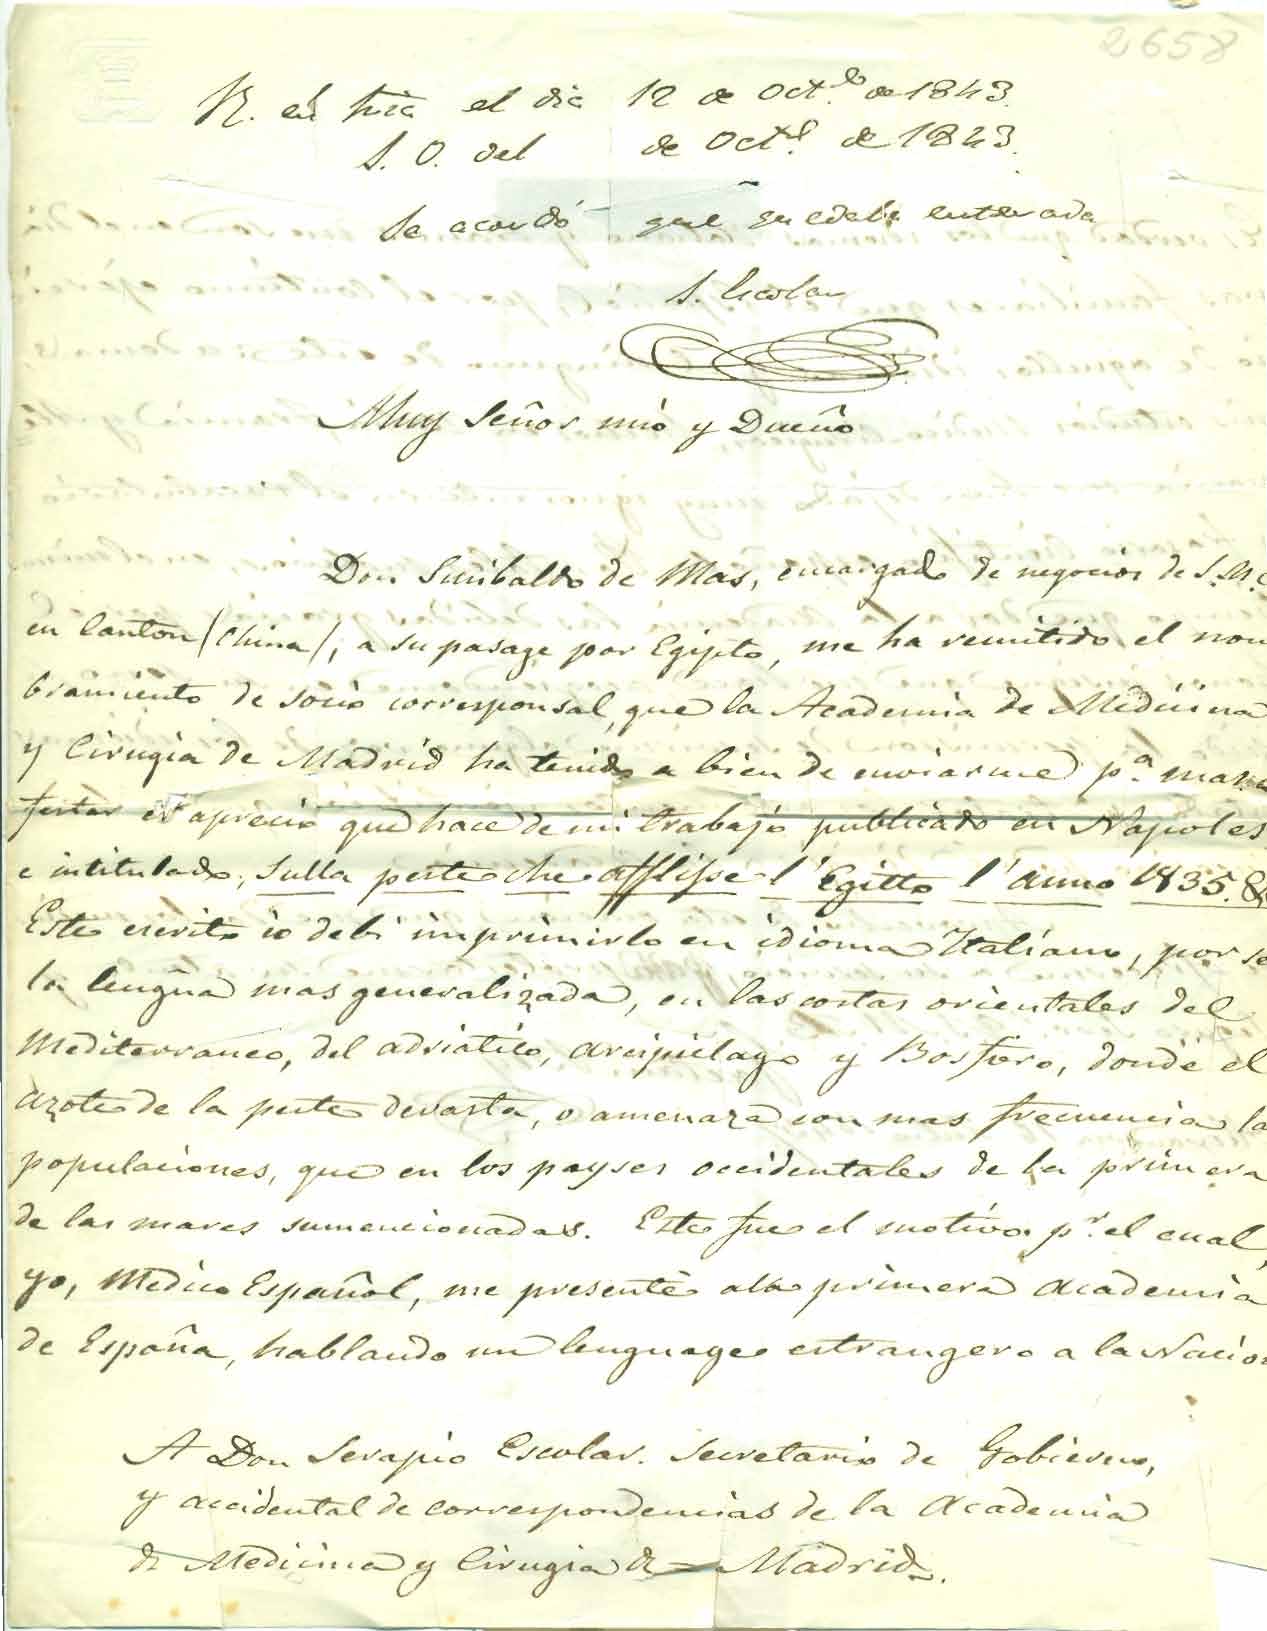 2658
R. en el dia 12 de Oct.e de 1843.
S. O. del de Oct.e de 1843.
Se acordó que quedaba enterada
S. Escolar
Muy Señor mio y Dueño
Don Sinibaldo de Mas, encargado de negocios de S. M. C
en Canton (China), a su pasage por Egipto, me ha remitido el nom
bramiento de socio corresponsal, que la Academia de Medicina
y Cirugia de Madrid ha tenido a bien de enviarme p.a mani
festar el aprecio que hace de mi trabajo publicado en Napoles
e intitulado, Sulla peste che afflisse l'Egitto l'anno 1835. &
Este escrito io debi imprimirlo en idioma Italiano, por se
la lengua mas generalizada, en las costas orientales del
Mediterraneo, del adriatico, arcipielago y Bosforo, donde el
azote de la peste devasta, o amenaza con mas frecuencia la
populaciones, que en los payses occidentales de la primera
de las mares sumencionadas. Este fue el motivo p.r el cual,
yo, Medico Español, me presenté ala primera Academia
de España, hablando un lenguage estrangero a la Nacion
A Don Serapio Escolar. Secretario de Gobierno,
y accidental de correspondencias de la Academia
de Medicina y Cirugia de Madrid.